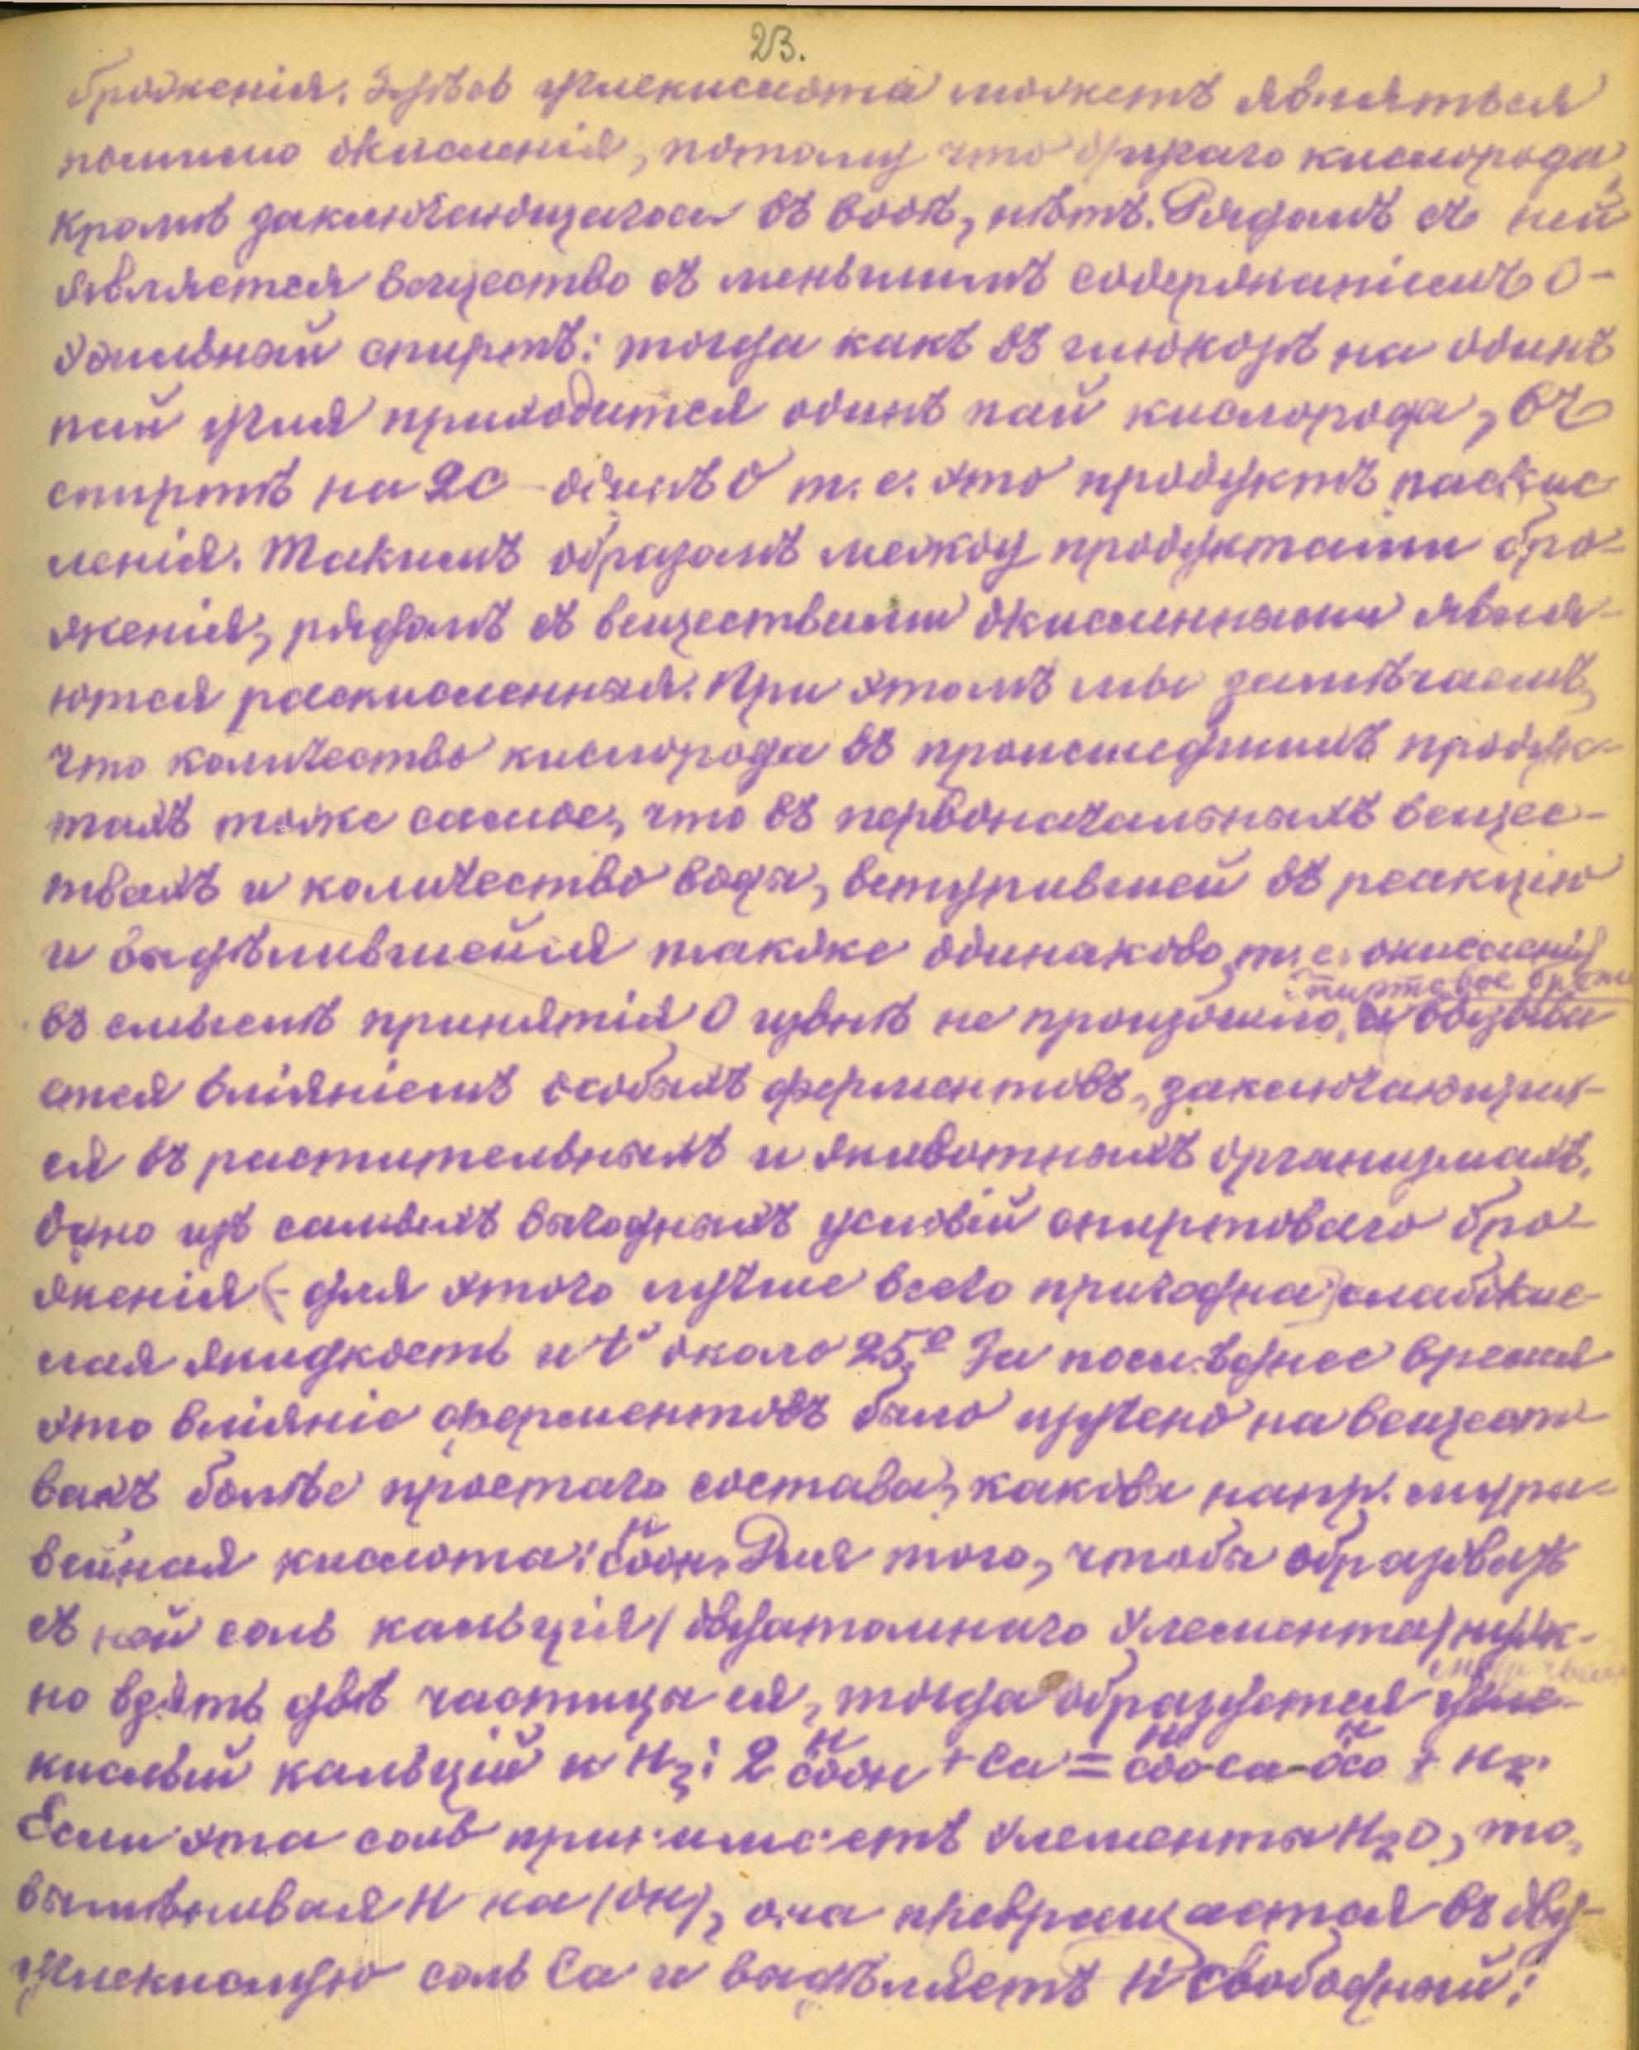 23.
броженія. Здѣсь углекислота можетъ являться
помимо окисленія, потому что другаго кислорода,
кромѣ заключающагося въ водѣ, нѣтъ. Рядомъ съ ней
является вещество съ меньшимъ содержаніемъ O -
этильный спиртъ: тогда какъ въ глюкозѣ на одинъ
пай угля приходится одинъ пай кислорода, въ
спиртѣ на 2C - одинъ O т. е. это продуктъ раскис-
ленія. Такимъ образомъ между продуктами бро-
женія, рядомъ съ веществами окисленными явля-
ются раскисленныя. При этомъ мы замѣчаемъ,
что количество кислорода въ происшедшихъ продук-
тахъ тоже самое, что въ первоначальныхъ вещес-
твахъ и количество воды, вступившей въ реакцію
и выдѣлившейся также одинаково, т. е. окисленія
спиртовое броже
въ смыслѣ принятія O извнѣ не произошло. вызыва
ется вліяніемъ особыхъ ферментовъ, заключающих-
ся въ растительныхъ и животныхъ организмахъ.
Одно изъ самыхъ выгодныхъ условій спиртоваго бро-
женія (- для этого лучше всего пригодна) слабокис-
лая жидкость и t° около 25°. За послѣднее время
это вліяніе ферментовъ было изучено на вещест-
вахъ болѣе простаго состава, каковы напр. мура-
вейная кислота: HCOOH. Для того, чтобы образовать
съ ней соль кальція (двуатомнаго элемента) нуж-
но взять двѣ частицы ея, тогда образуется угле-
кислый кальцій и H₂: 2 HCOOH + Ca = HCOO-Ca-OCOH + H₂.
Если эта соль принимаетъ элементы H₂O, то,
вымѣнивая H на (OH), она превращается въ дву-
углекислую соль Ca и выдѣляетъ H свободный: